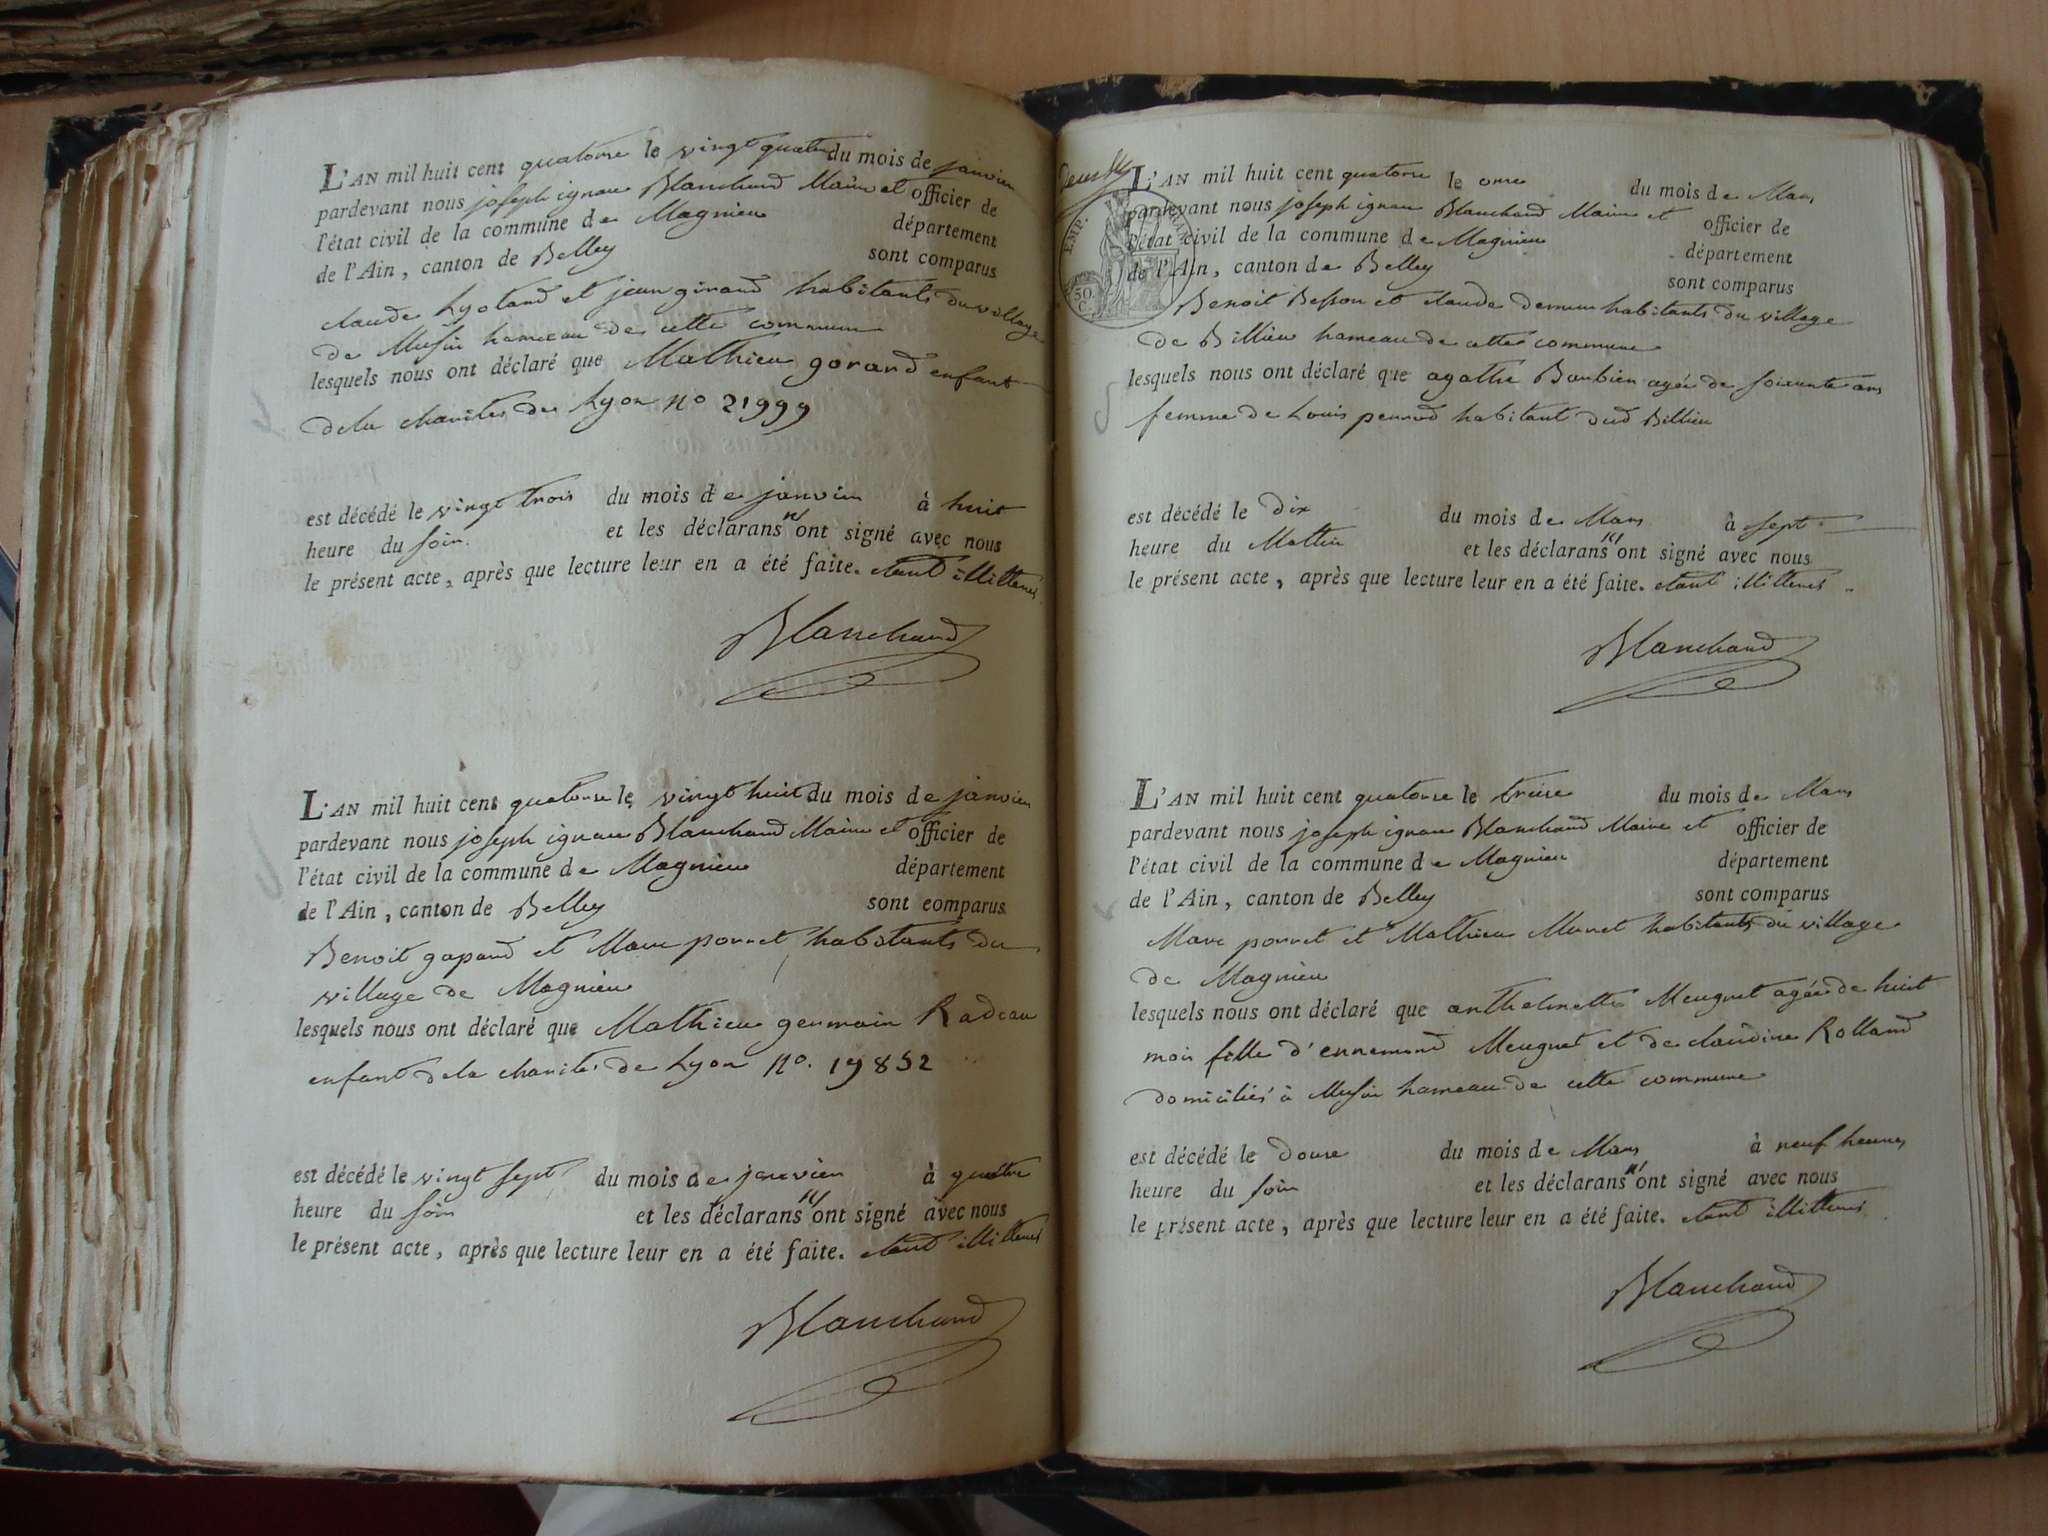 L'AN mil huit cent quatorze le vingt quatre du mois de janvier
pardevant nous joseph ignace Blanchard Maire et officier de
l'état civil de la commune de Magnieu département
de l'Ain, canton de Belley sont comparus
claude hyotard et jean girard habitants du village
de Musin hameau de cette commune
lesquels nous ont déclaré que Mathieu gorard enfant
de la charité de Lyon no 21999
est décédé le vingt trois du mois de janvier à huit
heure du soir. et les déclarans n' ont signé avec nous
le présent acte, après que lecture leur en a été faite. etant illitterés
Blanchard
L'AN mil huit cent quatorse le vingt huit du mois de janvier
pardevant nous joseph ignace Blanchard Maire et officier de
l'état civil de la commune de Magnieu département
de l'Ain, canton de Belley sont comparus
Benoit gapard et Marc ponnet habitants du
village de Magnieu
lesquels nous ont déclaré que Mathieu germain Radeau
enfant de la charité de Lyon no. 19852
est décédé le vingt sept du mois de janvier à quatre
heure du soir et les déclarans n' ont signé avec nous
le présent acte, après que lecture leur en a été faite. etant illitterés
Blanchard
EMP.
50.
C.
L'AN mil huit cent quatorze le onze du mois de Mars
pardevant nous joseph ignace Blanchard Maire et officier de
l'état civil de la commune de Magnieu département
de l'Ain, canton de Belley sont comparus
Benoit Besson et claude habitants du village
de Billieu hameau de cette commune
lesquels nous ont déclaré que agathe Barbier agée de soixante ans
femme de Louis habitant dud Billieu
est décédé le dix du mois de Mars à sept
heure du Matin et les déclarans n' ont signé avec nous
le présent acte, après que lecture leur en a été faite. etant illitterés
Blanchard
L'AN mil huit cent quatorse le treise du mois de Mars
pardevant nous joseph ignace Blanchard Maire et officier de
l'état civil de la commune de Magnieu département
de l'Ain, canton de Belley sont comparus
Marc ponnet et Mathieu Munet habitants du village
de Magnieu
lesquels nous ont déclaré que anthelmette Meugnet agée de huit
mois fille d'ennemond Meugnet et de claudine Rolland
domiciliés à Musin hameau de cette commune
est décédé le douze du mois de Mars à neuf heures
heure du soir et les déclarans n' ont signé avec nous
le présent acte, après que lecture leur en a été faite. etant illitterés
Blanchard